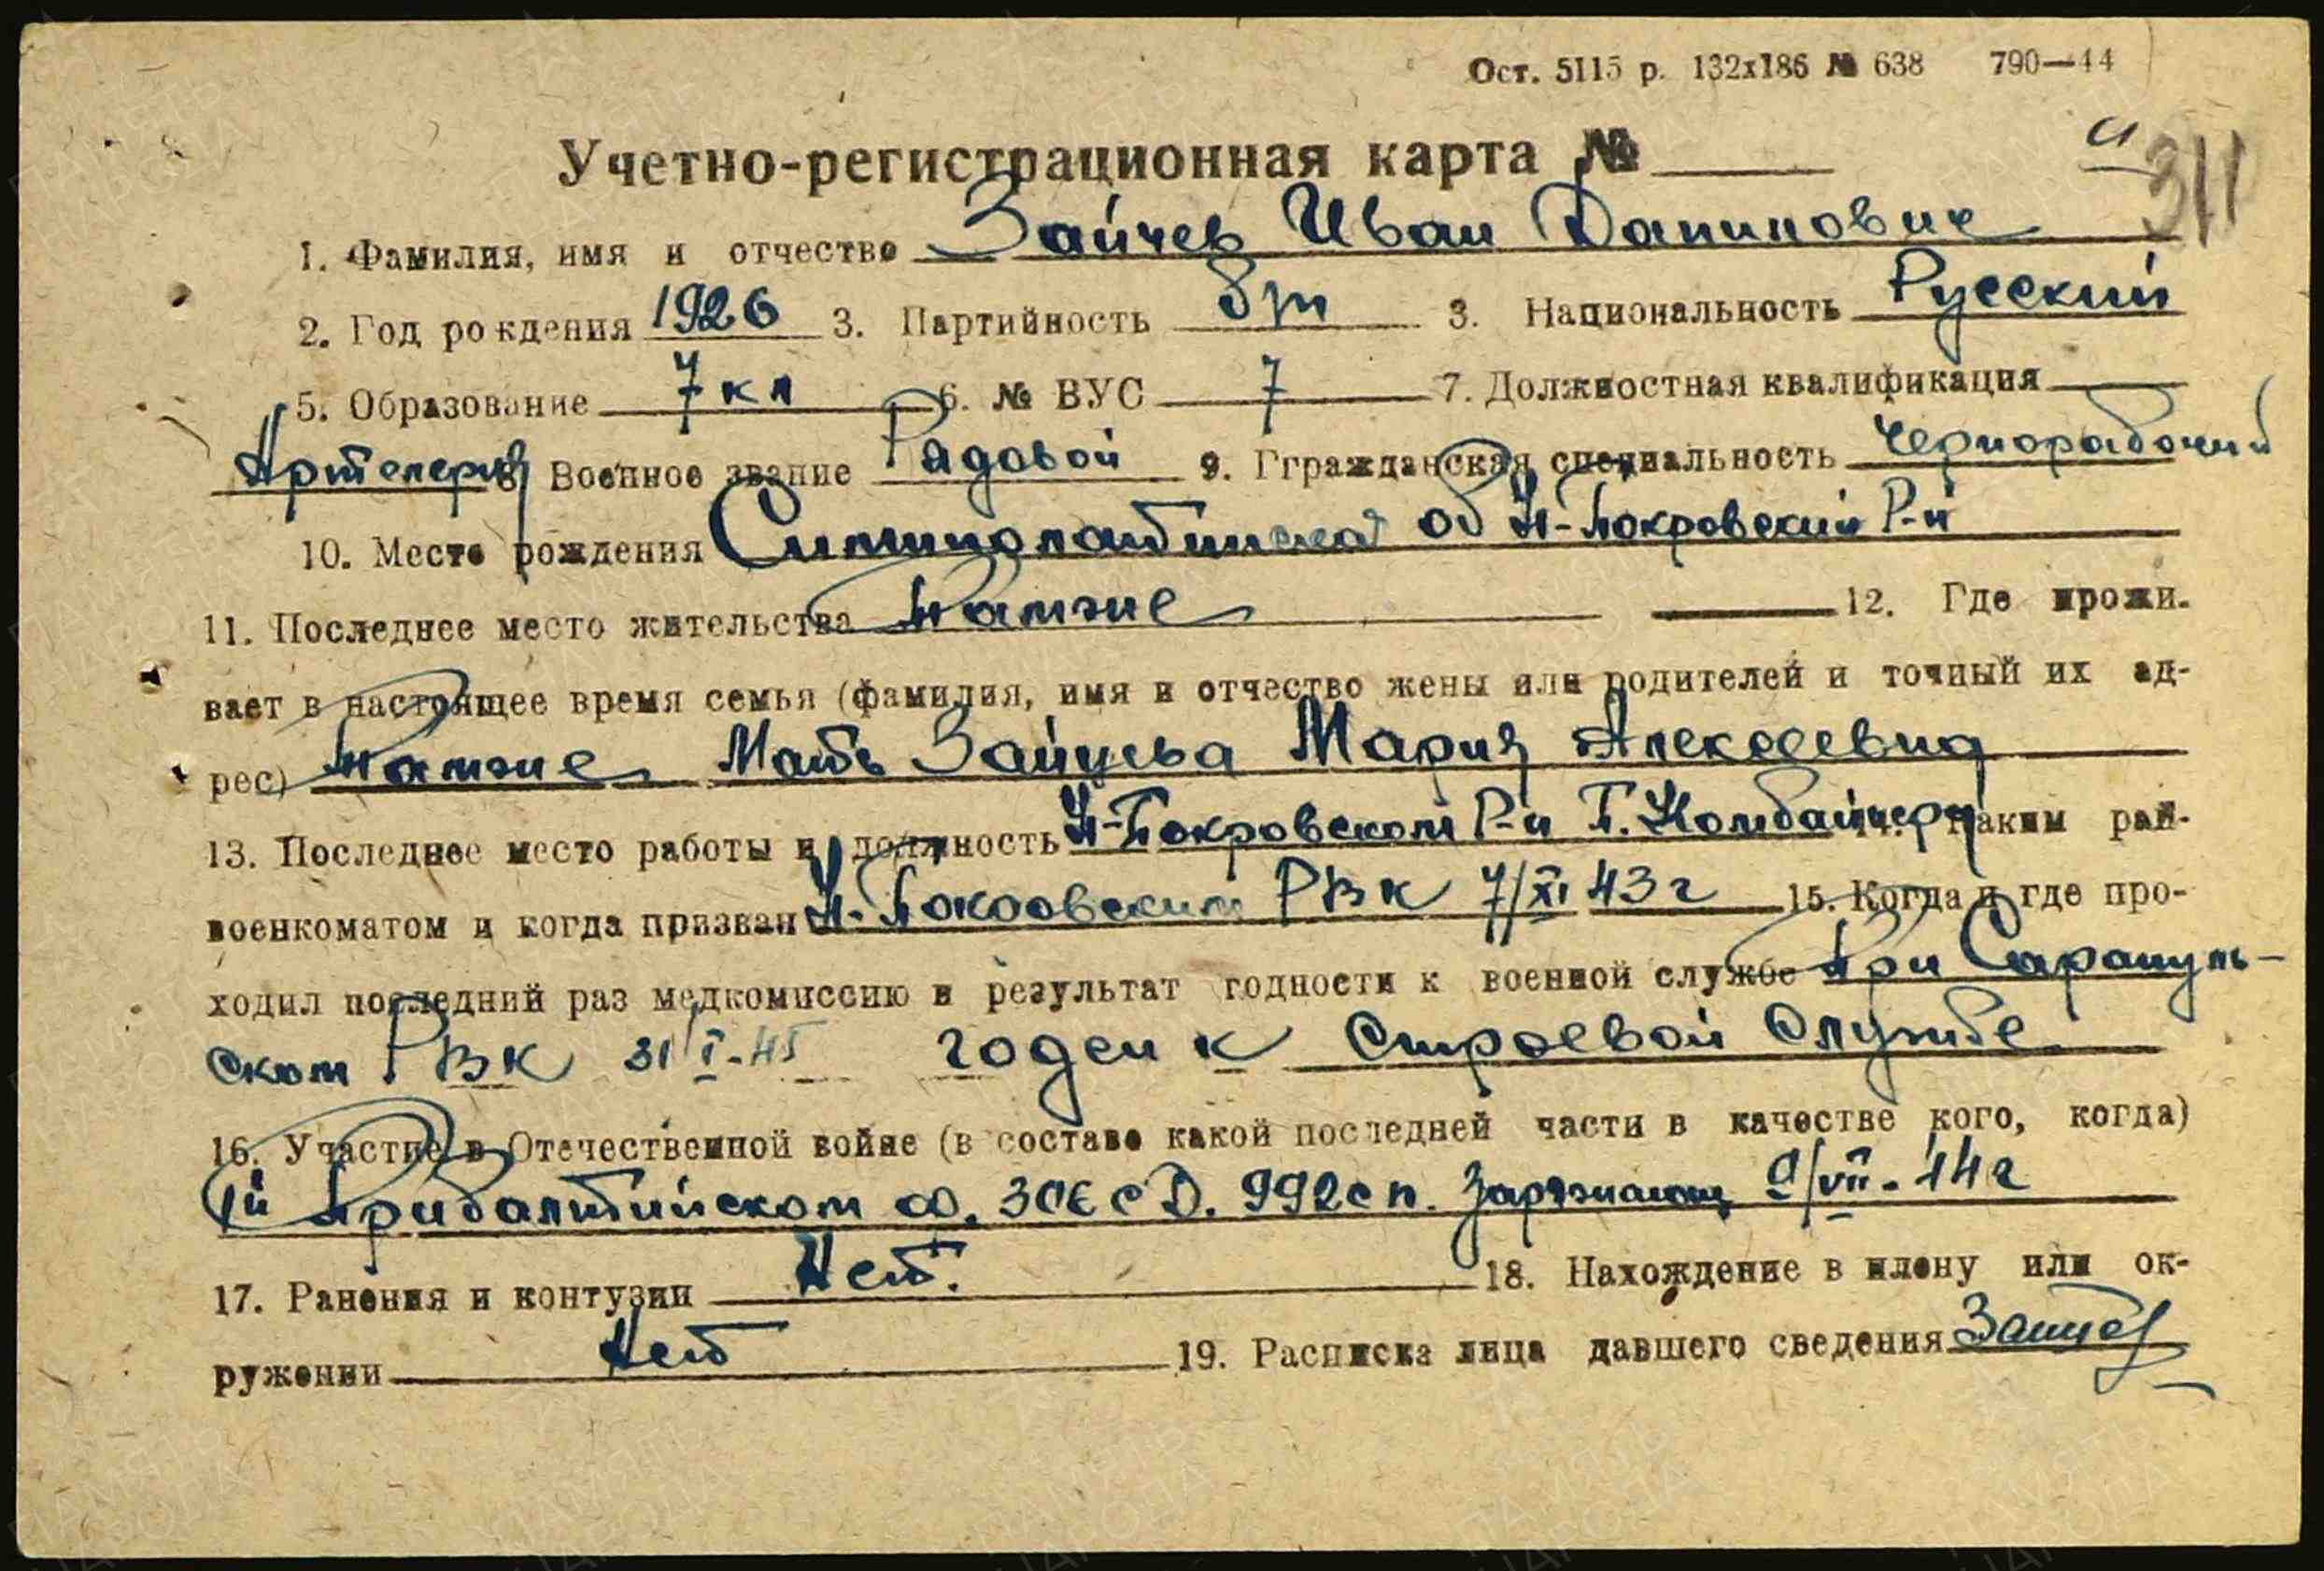 Ост. 5115 р. 132х186 № 638 790—44
Учетно-регистрационная карта №
311
1. Фамилия, имя и отчество Зайчев Иван Данилович
2. Год рождения 1926 3. Партийность б/п 3. Национальность Русский
5. Образование 7 кл 6. № ВУС 7 7. Должностная квалификация
Артелерия 8. Военное звание Рядовой 9. Ггражданская специальность Чернорабочий
10. Место рождения Об Н-Покровский Р-н
11. Последнее место жительства Тамже 12. Где прожи-
вает в настоящее время семья (фамилия, имя и отчество жены или родителей и точный их ад-
рес) Тамже Мать Зайцева Мария Алексеевна
13. Последнее место работы и должность Н-Покровском Р-н П. Комбайнера 14. Каким рай-
военкоматом и когда призван Н-Покровским РВК 7/XI 43 г 15. Когда и где про-
ходил последний раз медкомиссию и результат годности к военной службе При Сарапуль-
ском РВК 31/I-45 годен к Строевой Службе
16. Участие в Отечественной войне (в составе какой последней части в качестве кого, когда)
1й Прибалтийском ф. СД. 992 сп. /VII-44 г
17. Ранения и контузии Нет. 18. Нахождение в плену или ок-
ружении Нет 19. Расписка лица давшего сведения Зайцев